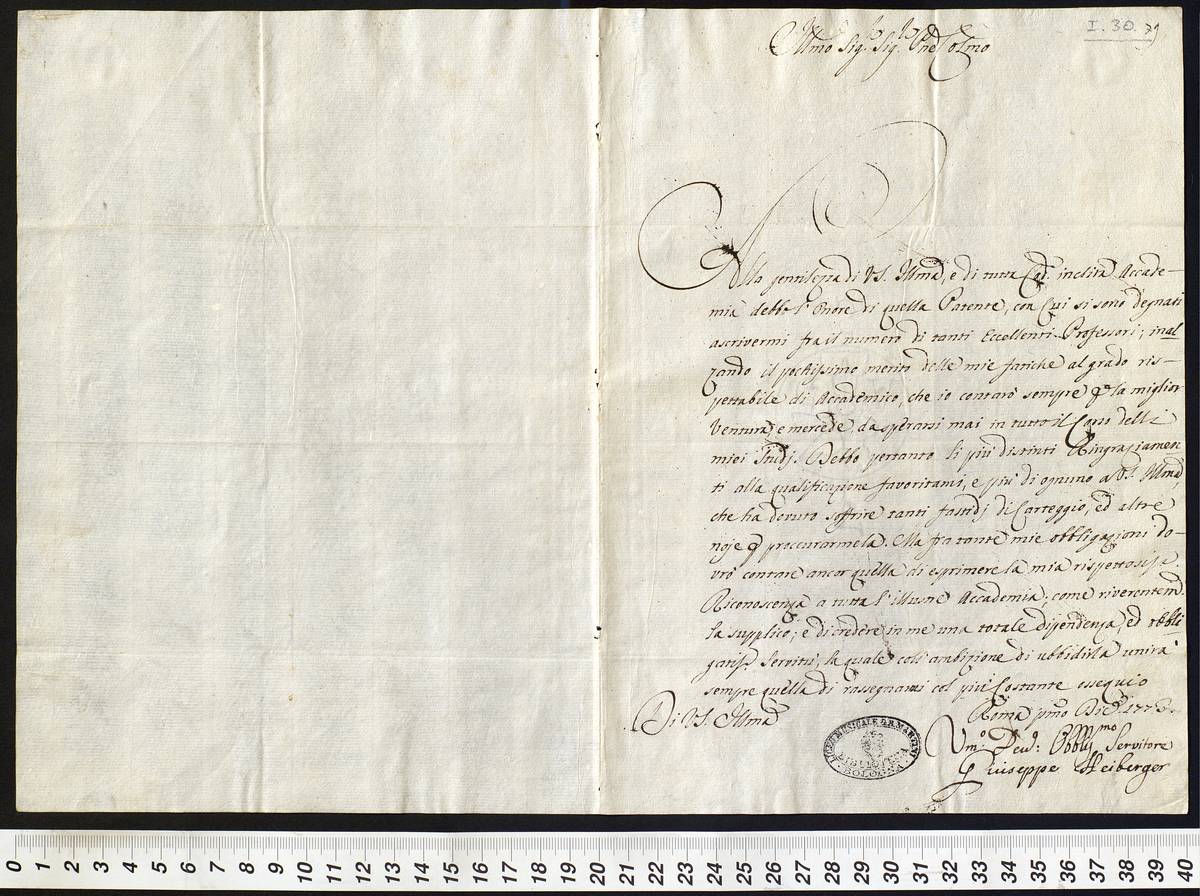 I. 30. 79
Illmo Sig.r Sig.r Pne Colmo
Alla gentilezza di V.S. Illma, e di tutta Cod.a inclita Accade-
mia debbo l'Onore di quella Patente, con Cui si sono degnati
ascrivermi fra il numero di tanti Eccellenti Professori; inal
zando il pochissimo merito delle mie fatiche al grado ris-
pettabile di Accademico, che io contarò sempre p la miglior
Ventura, e mercede da sperarsi mai in tutto il Corso delli
miei Studj. Debbo pertanto li più distinti Ringraziamen
ti alla qualificazione favoritami, e più di ognuno a V.S. Illma,
che ha dovuto soffrire tanti fastidj di Carteggio, ed altre
noje p proccurarmela. Ma fra tante mie obbligazioni do-
vrò contare ancor quella di esprimere la mia rispettosissa
Riconoscenza a tutta l'illustre Accademia; come riverentem.e
la supplico; e di credere in me una totale dipendenza, ed obbli
gatiss.a Servitù, la quale coll'ambizione di ubbidirla unirà
sempre quella di rassegnarmi col più Costante essequio
Di V.S. Illma
Roma pmo Dic.e
Um.o Dev.o Obblig.mo Servitore
Giuseppe Heiberger
LICEO MUSICALE G.B. MARTINI
BIBLIOTECA
BOLOGNA
0 1 2 3 4 5 6 7 8 9 10 11 12 13 14 15 16 17 18 19 20 21 22 23 24 25 26 27 28 29 30 31 32 33 34 35 36 37 38 39 40